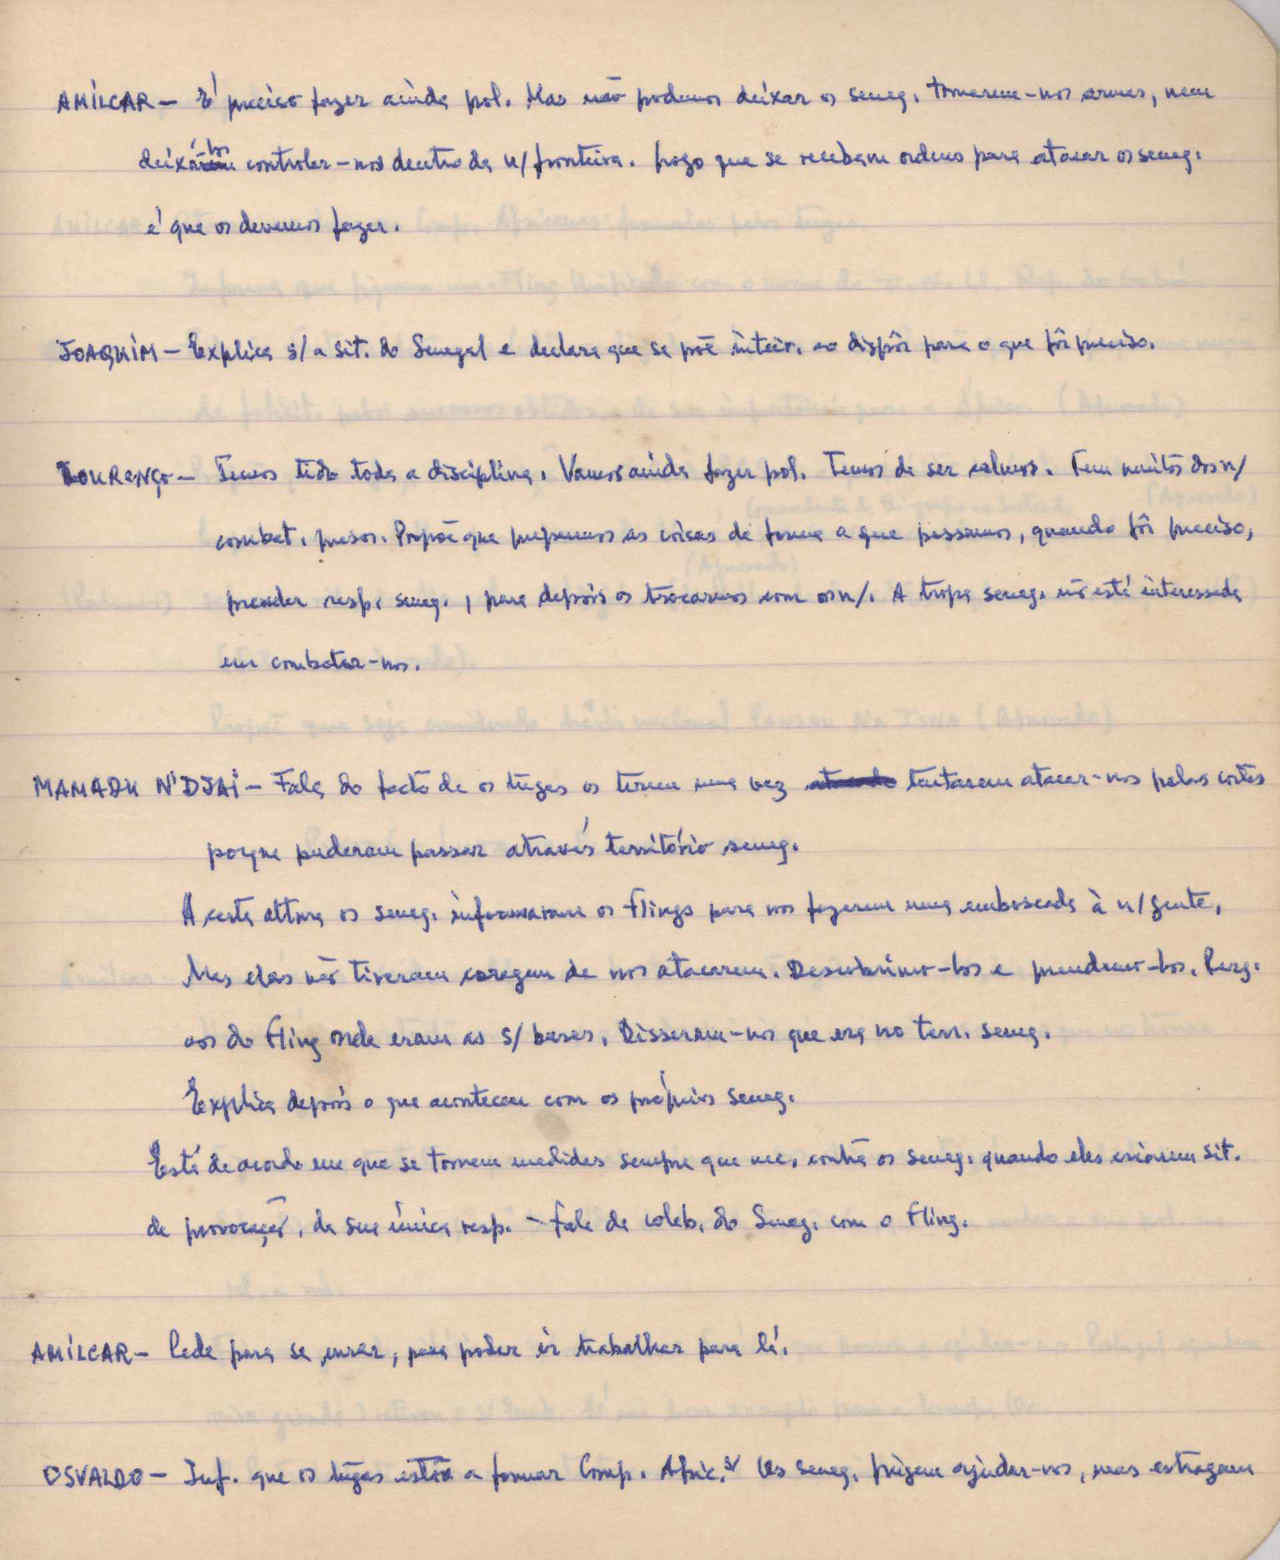 AMÍLCAR — É preciso fazer ainda pol. Mas não podemos deixar os seneg. tomarem-nos armas, nem
deixá-los controlar-nos dentro da n/fronteira. Logo que se recebam ordens para atacar os seneg.
é que os devemos fazer.
JOAQUIM — Explica s/ a sit. do Senegal e declara que se põe inteir. ao dispôr para o que fôr preciso.
LOURENÇO — Temos tido toda a disciplina. Vamos ainda fazer pol. Temos de ser calmos. Tem muitos dos n/
combat. presos. Propõe que preparemos as coisas de forma a que possamos, quando fôr preciso,
prender resp. seneg., para depois os trocarmos com os n/. A tropa seneg. não está interessada
em combater-nos.
MAMADU N'DJAI — Fala do facto de os tugas os terem uma vez tentarem atacar-nos pelas costas
porque puderam passar através território seneg.
A certa altura os seneg. informaram os Flings para nos fazerem uma emboscada à n/gente.
Mas eles não tiveram coragem de nos atacarem. Descubrimo-los e prendemo-los. Perg.
aos do Fling onde eram as s/ bases. Disseram-nos que era no terr. seneg.
Explica depois o que aconteceu com os próprios seneg.
Está de acordo em que se tomem medidas sempre que nec. contra os seneg. quando eles criarem sit.
de provocação, da sua única resp. — Fala da colab. do Seneg. com o Fling.
AMÍLCAR — Pede para se curar, para poder ir trabalhar para lá.
OSVALDO — Inf. que os tugas estão a formar Comp. Afric.s Os seneg. fingem ajudar-nos, mas estragam